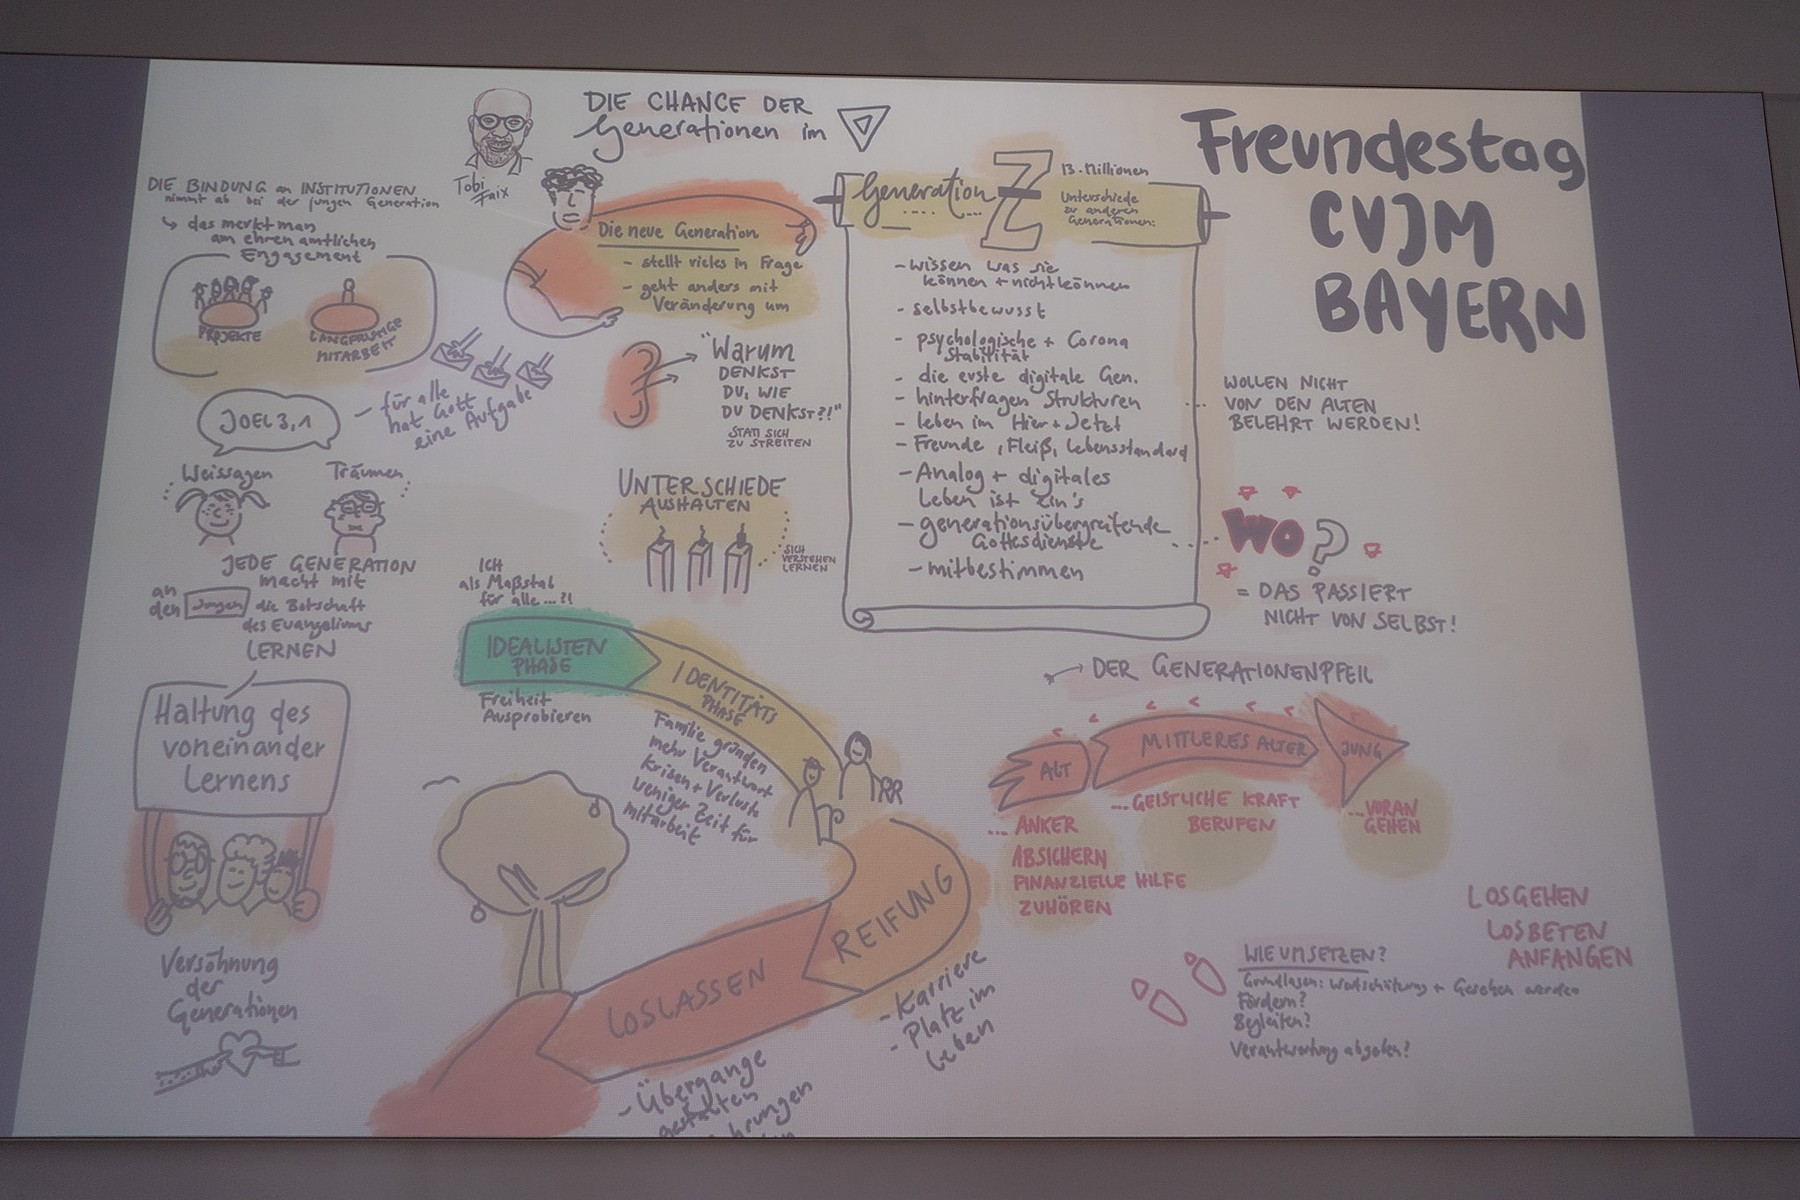 DIE CHANCE DER
Generationen im
Tobi
Faix
Freundestag
CVJM
BAYERN
DIE BINDUNG an INSTITUTIONEN
nimmt ab bei der jungen Generation
↳ das merkt man
am ehrenamtlichen
Engagement
PROJEKTE
LANGFRISTIGE
MITARBEIT
JOEL 3,1
– für alle
hat Gott
eine Aufgabe
Weissagen
Träumen
JEDE GENERATION
macht mit
an
den
Jungen
die Botschaft
des Evangeliums
LERNEN
Haltung des
voneinander
Lernens
Versöhnung
der
Generationen
Die neue Generation
- stellt vieles in Frage
- geht anders mit
Veränderung um
"Warum
DENKST
DU, WIE
DU DENKST?!"
STATT SICH
ZU STREITEN
UNTERSCHIEDE
AUSHALTEN
SICH
VERSTEHEN
LERNEN
Generation Z
13. Millionen
Unterschiede
zu anderen
Generationen:
- wissen was sie
können + nicht können
- selbstbewusst
- psychologische + Corona
Stabilität
- die erste digitale Gen.
- hinterfragen Strukturen
- leben im Hier + Jetzt
- Freunde, Fleiß, Lebensstandard
- Analog + digitales
Leben ist Ein's
- generationsübergreifende
Gottesdienste
- mitbestimmen
WOLLEN NICHT
VON DEN ALTEN
BELEHRT WERDEN!
WO?
= DAS PASSIERT
NICHT VON SELBST!
ICH
als Maßstab
für alle...?!
IDEALISTEN
PHASE
Freiheit
Ausprobieren
IDENTITÄTS
PHASE
Familie gründen
mehr Verantwort
Krisen + Verluste
weniger Zeit für
mitarbeit
REIFUNG
- Karriere
- Platz im
Leben
LOSLASSEN
- Übergänge
gestalten
DER GENERATIONENPFEIL
ALT
MITTLERES ALTER
JUNG
... ANKER
ABSICHERN
FINANZIELLE HILFE
ZUHÖREN
... GEISTLICHE KRAFT
BERUFEN
... VORAN
GEHEN
LOSGEHEN
LOSBETEN
ANFANGEN
WIE UMSETZEN?
Grundlagen: Wertschätzung + Gesehen werden
Fördern?
Begleiten?
Verantwortung abgeben?